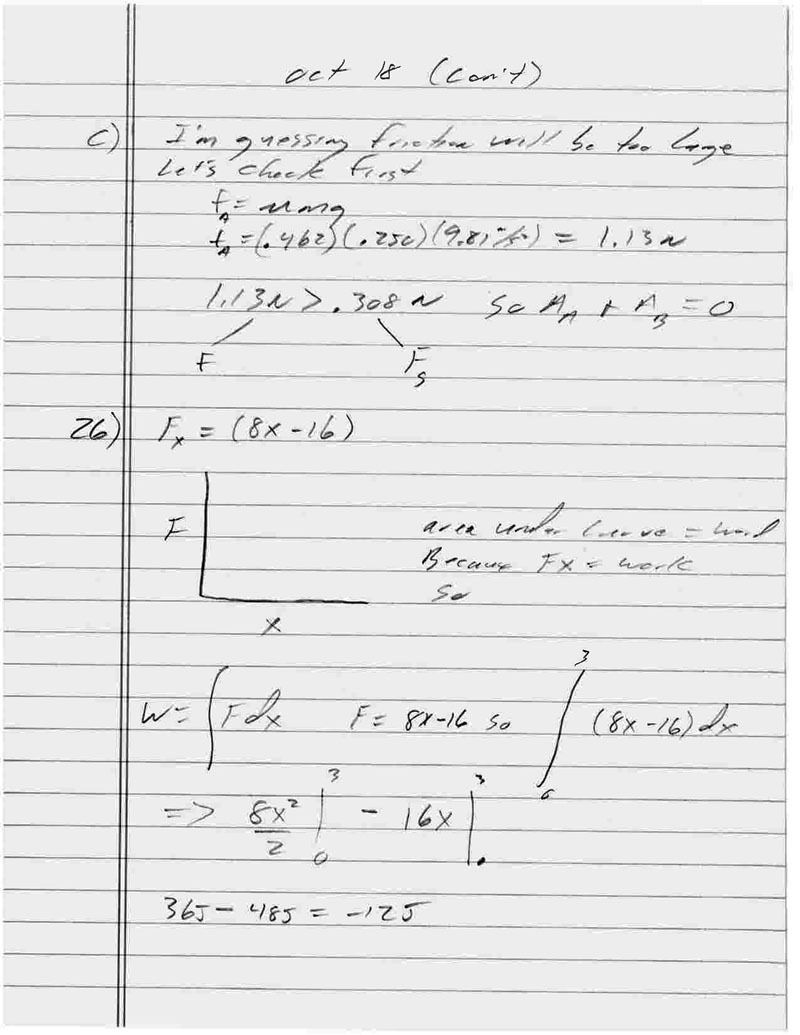 oct 18 (Con't)
c) I'm guessing friction will be too large
Let's check first
f_A = umg
f_A = (.462)(.250)(9.81 m/s²) = 1.13 N
1.13N > .308 N so A_A + A_B = 0
F F_s
26) F_x = (8x-16)
F
area under curve = work
Because Fx = work
so
x
W = ∫ F dx F = 8x-16 so ∫_0^3 (8x-16) dx
=> 8x²/2 |_0^3 - 16x |_0^3
36J - 48J = -12J